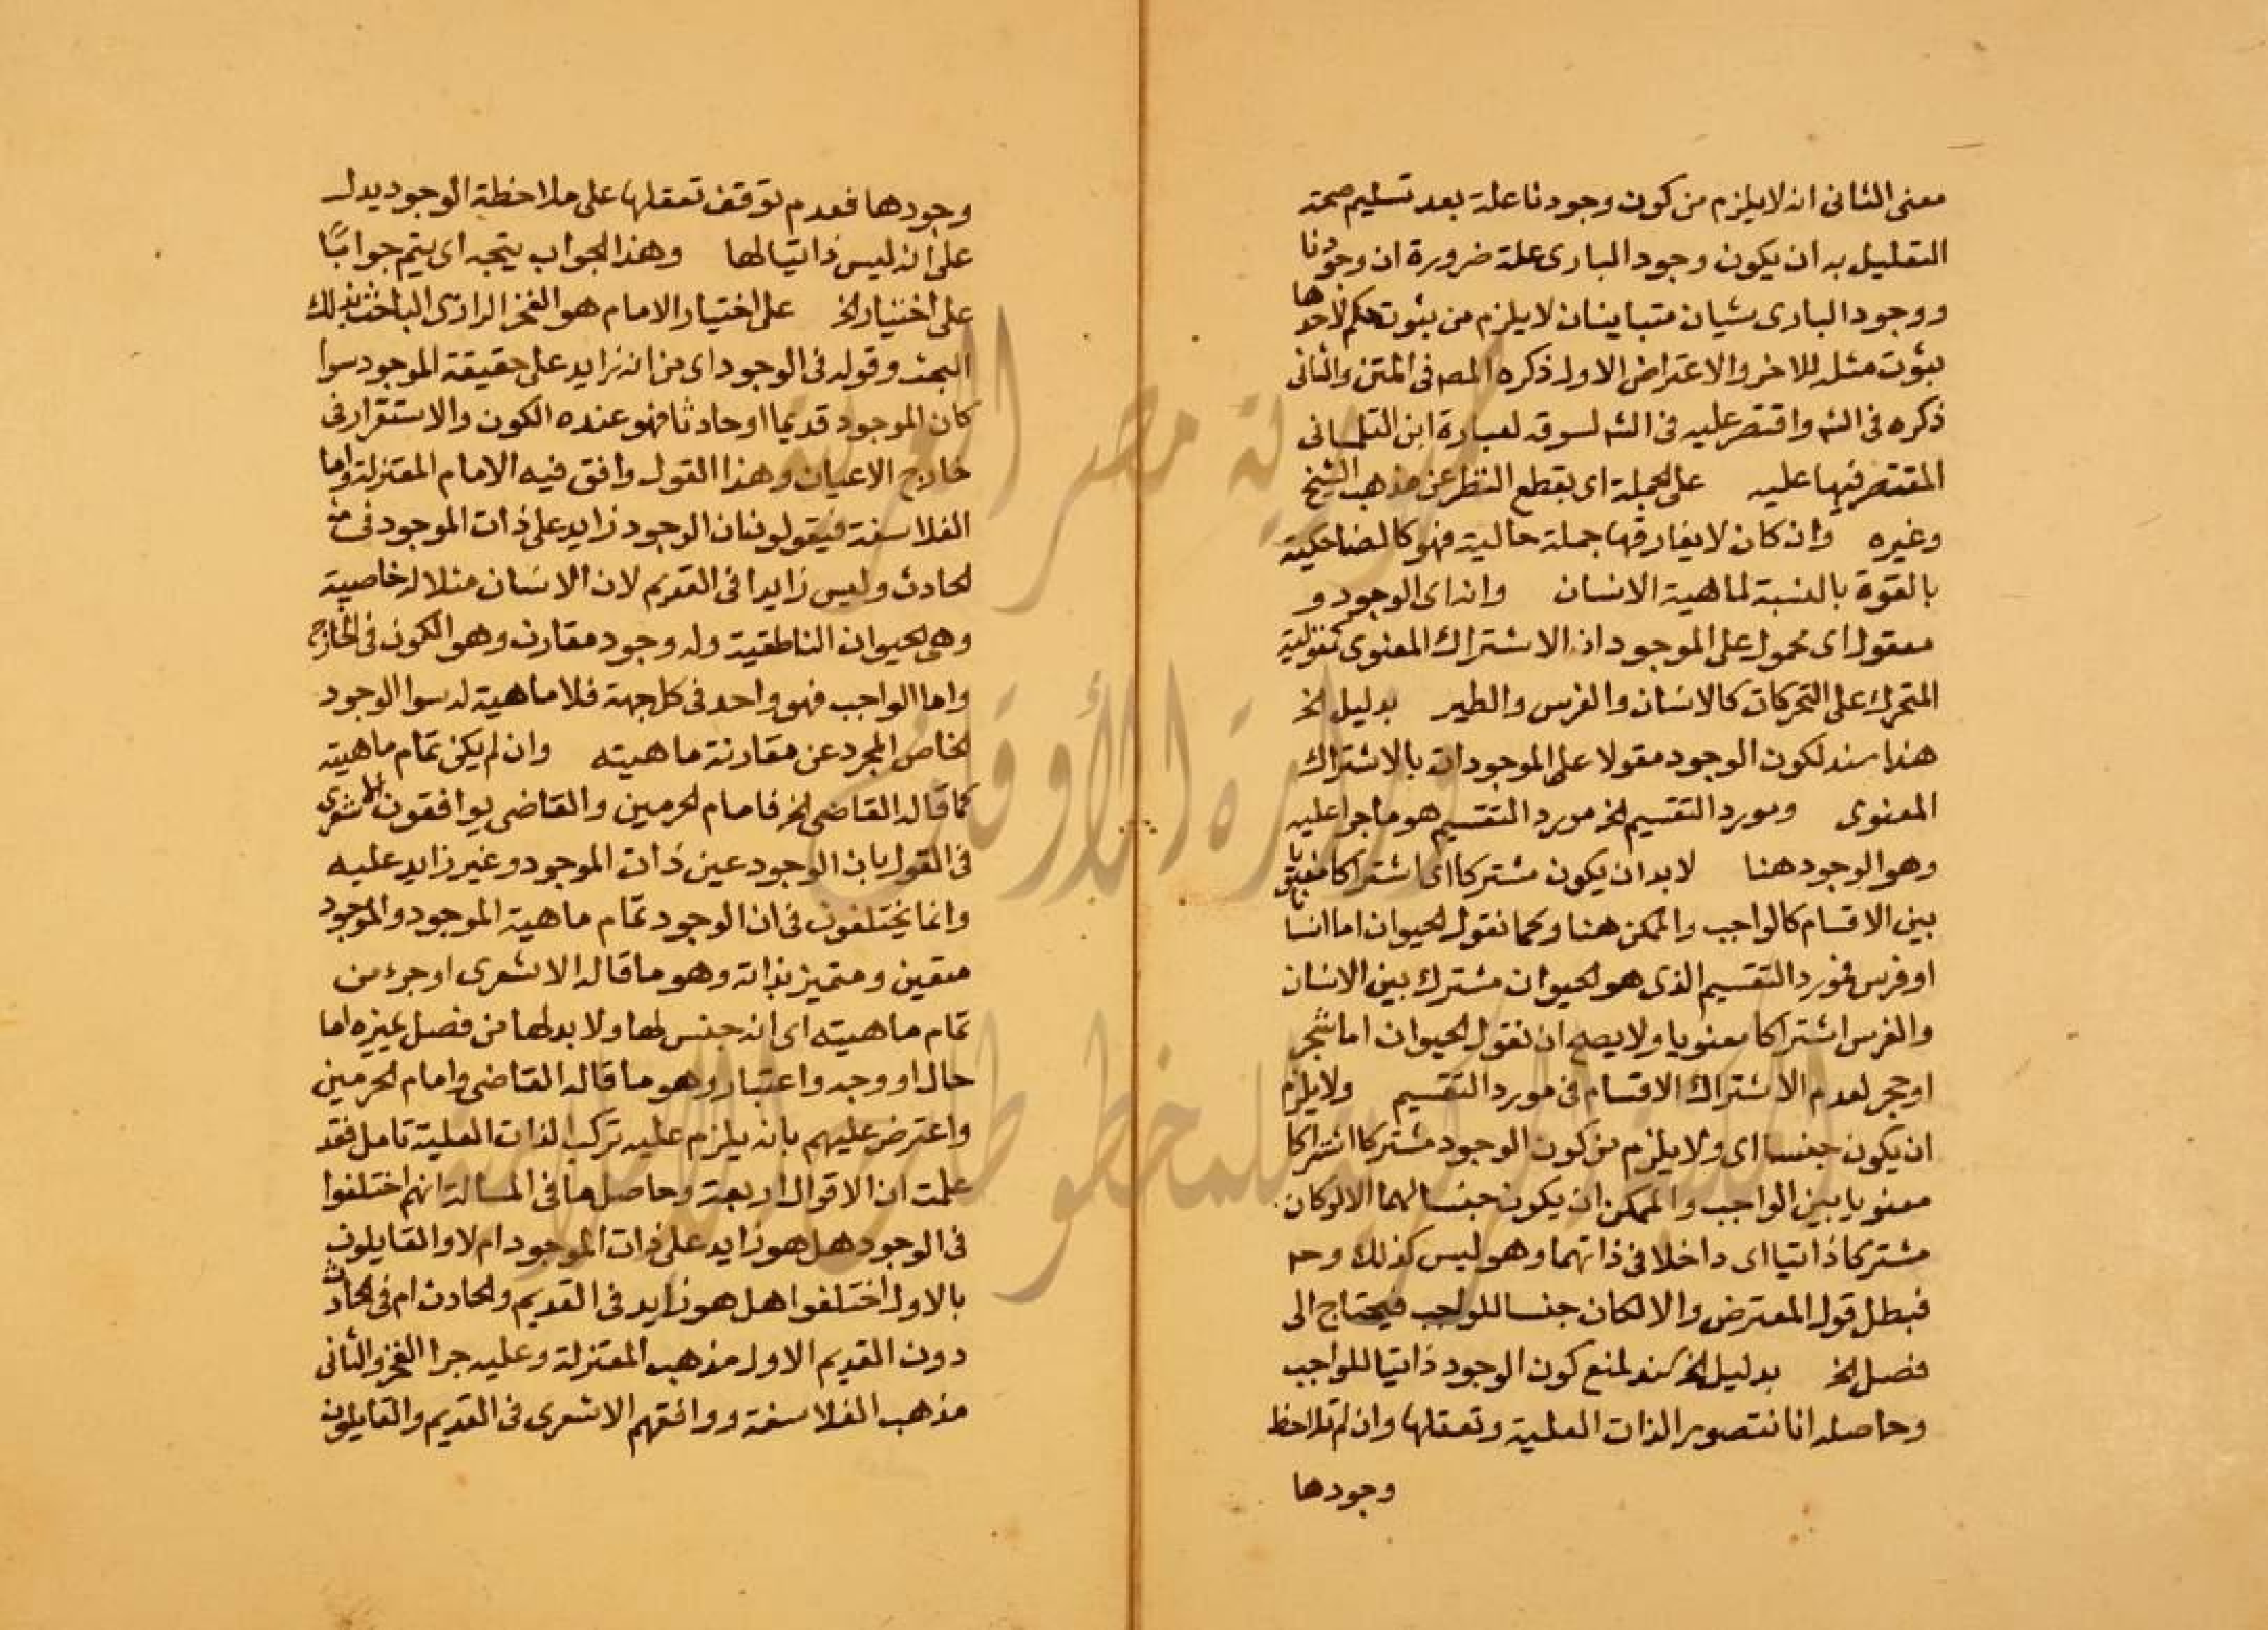 معنى الثانى انه لا يلزم من كون وجودنا علة بعد تسليم صحة
التعليل به ان يكون وجود البارى علة ضرورة ان وجودنا
ووجود البارى شيان متباينان لا يلزم من ثبوت حكم لاحدها
ثبوت مثله للاخر والاعتراض الاول ذكره المص فى المتن والثانى
ذكره فى الشه واقتصر عليه فى الشه لسوقه لعبارة ابن التلمسانى
المقتصر فيها عليه على الجملة اى بقطع النظر عن مذهب الشيخ
وغيره وان كان لا يفارقها جملة حالية فهو كالضاحكية
بالقوة بالنسبة لماهية الانسان وانه اى الوجود و
معقول اى محمول على الموجود ان الاشتراك المعنوى كمقولية
المتحرك على التحركات كالانسان والفرس والطير بدليل الخ
هذا سند لكون الوجود مقولا على الموجودات بالاشتراك
المعنوى ومورد التقسيم الخ مورد التقسيم هو ما جرا عليه
وهو الوجود هنا لا بد ان يكون مشتركا اى اشتراكا معنويا
بين الاقسام كالواجب والممكن هنا وكما نقول الحيوان اما انسا
او فرس فمورد التقسيم الذى هو الحيوان مشترك بين الانسان
والفرس اشتراكا معنويا ولا يصح ان نقول الحيوان اما شجر
او حجر لعدم الاشتراك الاقسام فى مورد التقسيم ولا يلزم
ان يكون جنسا اى ولا يلزم من كون الوجود مشتركا اشتراكا
معنويا بين الواجب والممكن ان يكون جنسا لهما الا لو كان
مشتركا ذاتيا اى داخلا فى ذاتهما وهو ليس كذلك وحه
فبطل قول المعترض والا لكان جنسا للواجب فيحتاج الى
فصل الخ بدليل الخ سند لمنع كون الوجود ذاتيا للواجب
وحاصله انا نتصور الذات العلية وتعقلها وان لم نلاحظ
وجودها
وجودها فعدم توقف تعقلها على ملاحظة الوجود يدل
على انه ليس ذاتيا لها وهذا الجواب يتجه اى يتم جوابًا
على اختيار الخ على اختيار الامام هو الفخر الرازى الباحث بذلك
البحث وقوله فى الوجود اى من انه زايد على حقيقة الموجود سوا
كان الموجود قديما او حادثا فهو عنده الكون والاستقرار فى
خارج الاعيان وهذا القول وافق فيه الامام المعتزلة واما
الفلاسفة فيقولون ان الوجود زايد على ذات الموجود فى
الحادث وليس زايدا فى القديم لان الانسان مثلا له خاصية
وهى الحيوان الناطقية وله وجود مقارن وهو الكون فى الخارج
واما الواجب فهو واحد فى كل جهة فلا ماهية له سوا الوجود
الخاص المجرد عن مقارنة ماهيته وان لم يكن تمام ماهيته
كما قاله القاضى الخ فامام الحرمين والقاضى يوافقون الاشعرى
فى القول بان الوجود عين ذات الموجود وغير زايد عليه
وانما يختلفون فى ان الوجود تمام ماهية الموجود والموجود
متعين ومتميز بذاته وهو ما قاله الاشعرى او جزء من
تمام ماهيته اى انه جنس لها ولا بد لها من فصل يميزه اما
حال او وجه واعتبار وهو ما قاله القاضى وامام الحرمين
واعترض عليهم بانه يلزم عليه تركب الذات العلية تامل فقد
علمت ان الاقوال اربعة وحاصل ما فى المسالة انهم اختلفوا
فى الوجود هل هو زايد على ذات الموجود ام لا والقايلون
بالاول اختلفوا هل هو زايد فى القديم والحادث ام فى الحادث
دون القديم الاول مذهب المعتزلة وعليه جرا الفخر والثانى
مذهب الفلاسفة ووافقهم الاشعرى فى القديم والقايلون